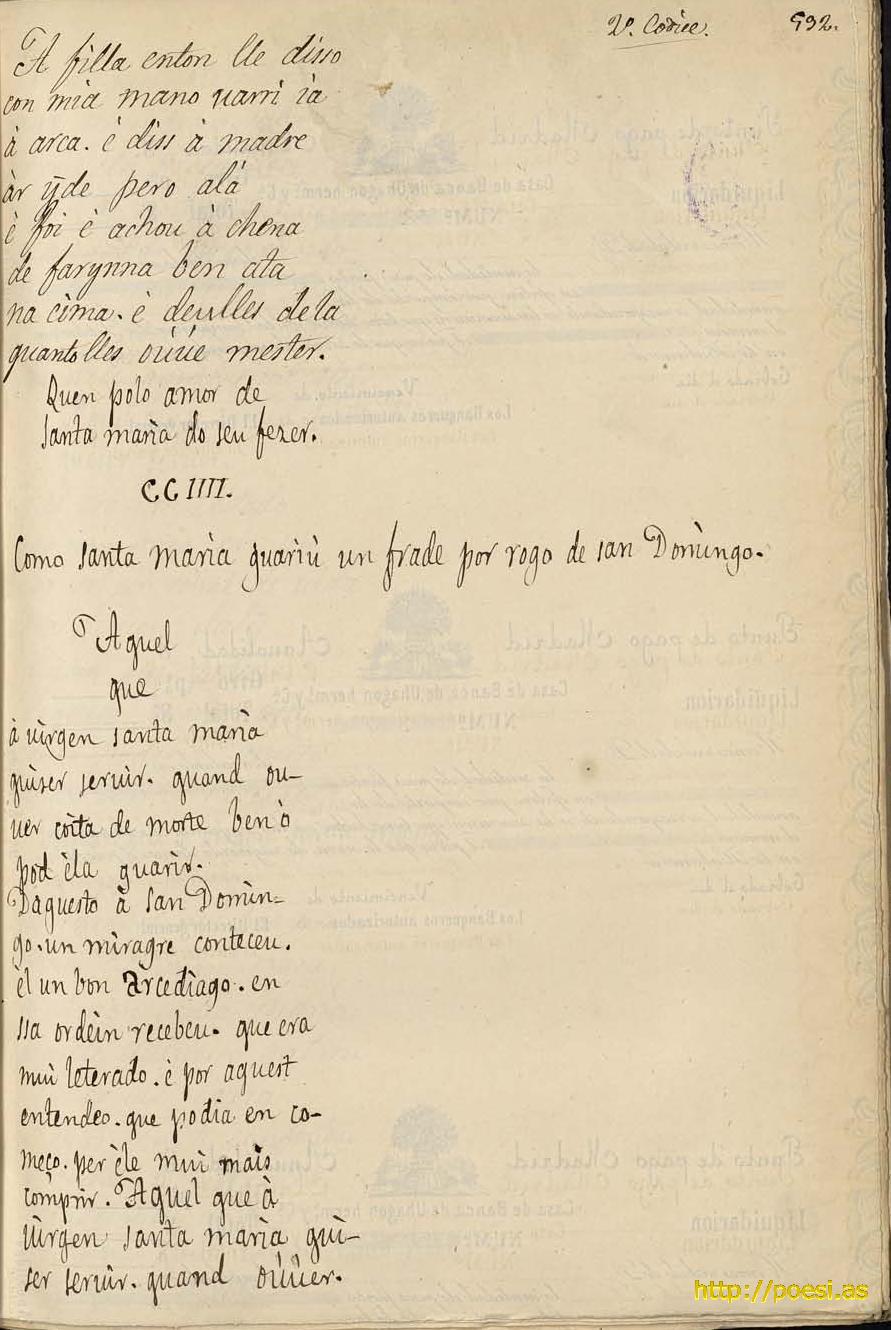 2º. Codice. 932.
A filla enton lle disso
con mia mano uarri ia
à arca. è diss à madre
àr ỹde pero alá
è foi è achou à chena
de farynna ben ata
na cima. è deulles de la
quanto lles oúúe mester.
Quen polo amor de
santa marìa do seu fezer.
CCIIII.
Como santa marìa guariù un frade por rogo de san Domìngo.
Aquel
que
à uìrgen santa marìa
quìser seruìr. quand ou-
uer coita de morte ben ò
pod èla guarìr.
Daquesto à san Domìn-
go. un mìragre conteceu.
èl un bon àrcedìago. en
ssa ordèin recebeu. que era
muì leterado. è por aquest
entendeo. que podìa en co-
meço. per èle muì maìs
comprir. Aquel que à
uìrgen santa marìa quì-
ser seruìr. quand oùùer.
http://poesi.as